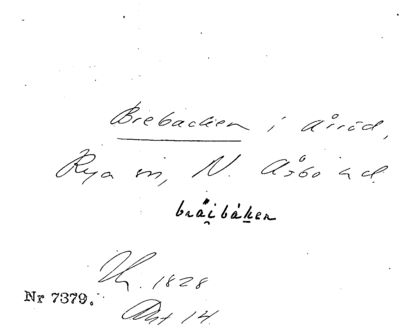 Brebacken i Årröd,
Rya sn, N. Åsbo hd.
bräibåken
Lh. 1828
Nr 7379.
Akt 14.